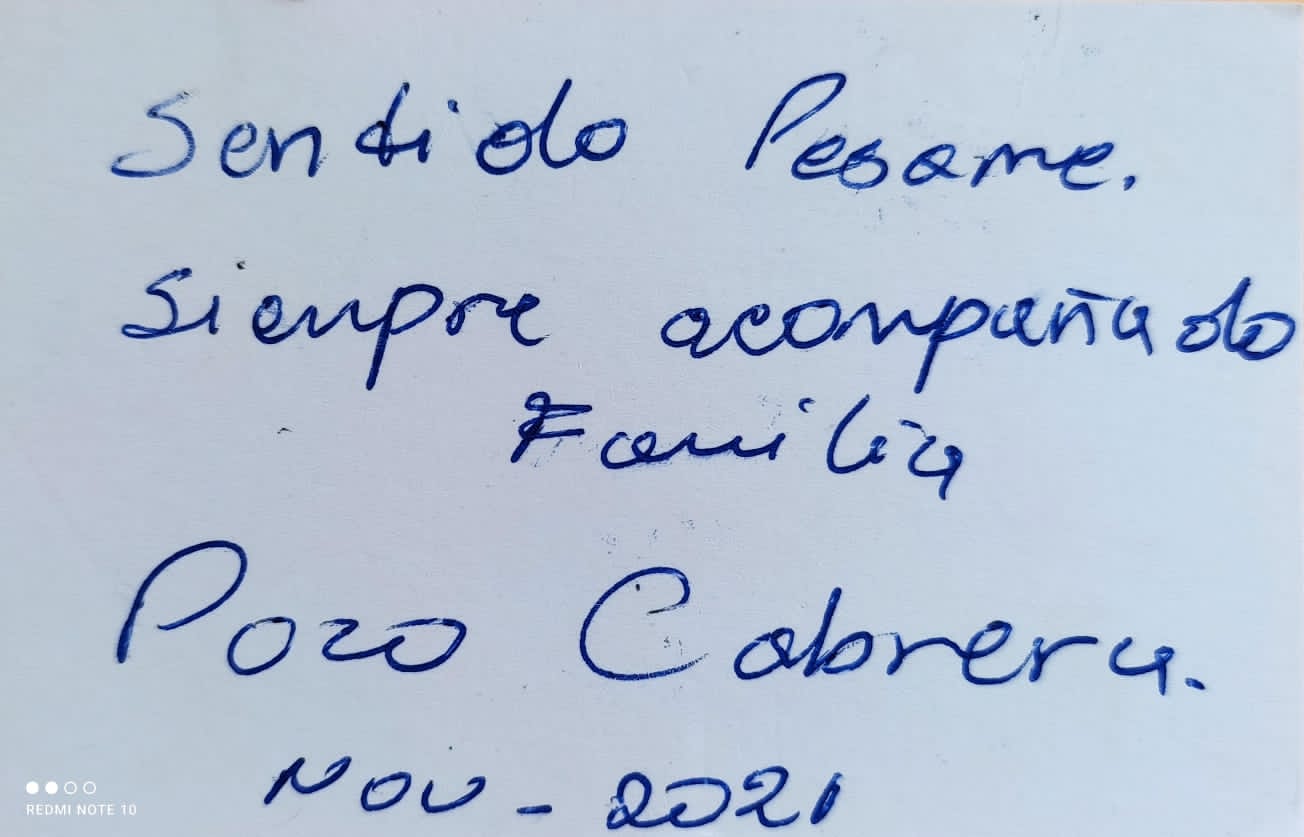 Sentido Pesame.
Siempre acompañado
Familia
Pozo Cabrera.
Nov - 2021
REDMI NOTE 10